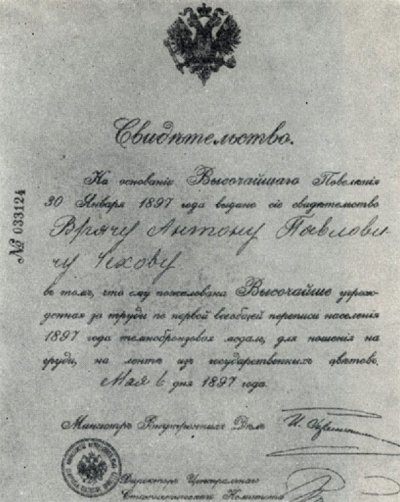 Свидѣтельство.
№ 033124
На основаніи Высочайшаго Повелѣнія
30 Января 1897 года выдано сіе свидѣтельство
Врачу Антону Павлови
чу Чехову
въ томъ, что ему пожалована Высочайше учреж-
денная за труды по первой всеобщей переписи населенія
1897 года темнобронзовая медаль, для ношенія на
груди, на лентѣ изъ государственныхъ цвѣтовъ.
Мая 6 дня 1897 года.
Министръ Внутреннихъ Дѣлъ
Директоръ Центральнаго
Статистическаго Комитета